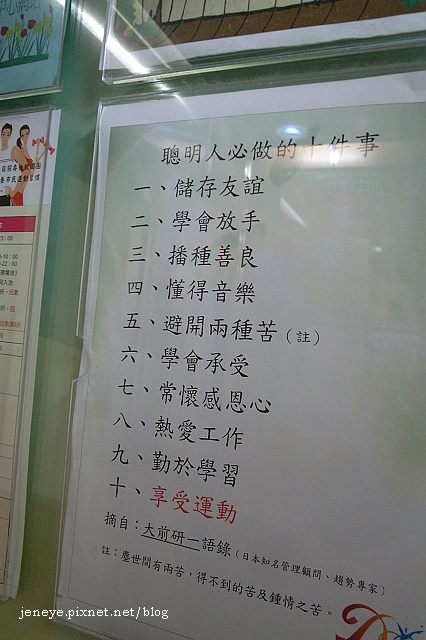 聰明人必做的十件事
一、儲存友誼
二、學會放手
三、播種善良
四、懂得音樂
五、避開兩種苦（註）
六、學會承受
七、常懷感恩心
八、熱愛工作
九、勤於學習
十、享受運動
摘自：大前研一語錄（日本知名管理顧問、趨勢專家）
註：塵世間有兩苦，得不到的苦及鍾情之苦。
jeneye.pixnet.net/blog